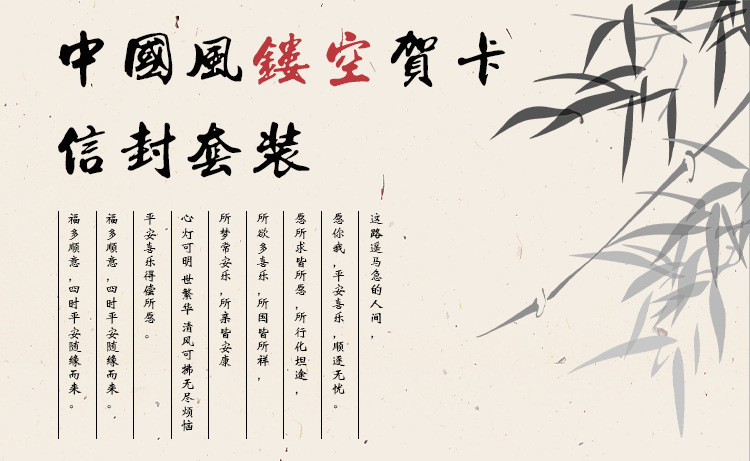 中國風鏤空賀卡
信封套装
这路遥马急的人间,
愿你我,平安喜乐,顺遂无忧。
愿所求皆所愿,所行化坦途,
所欲多喜乐,所国皆所祥,
所梦常安乐,所亲皆安康
心灯可明 世繁华 清风可拂无尽烦恼
平安喜乐得偿所愿。
福多顺意,四时平安随缘而来。
福多顺意,四时平安随缘而来。